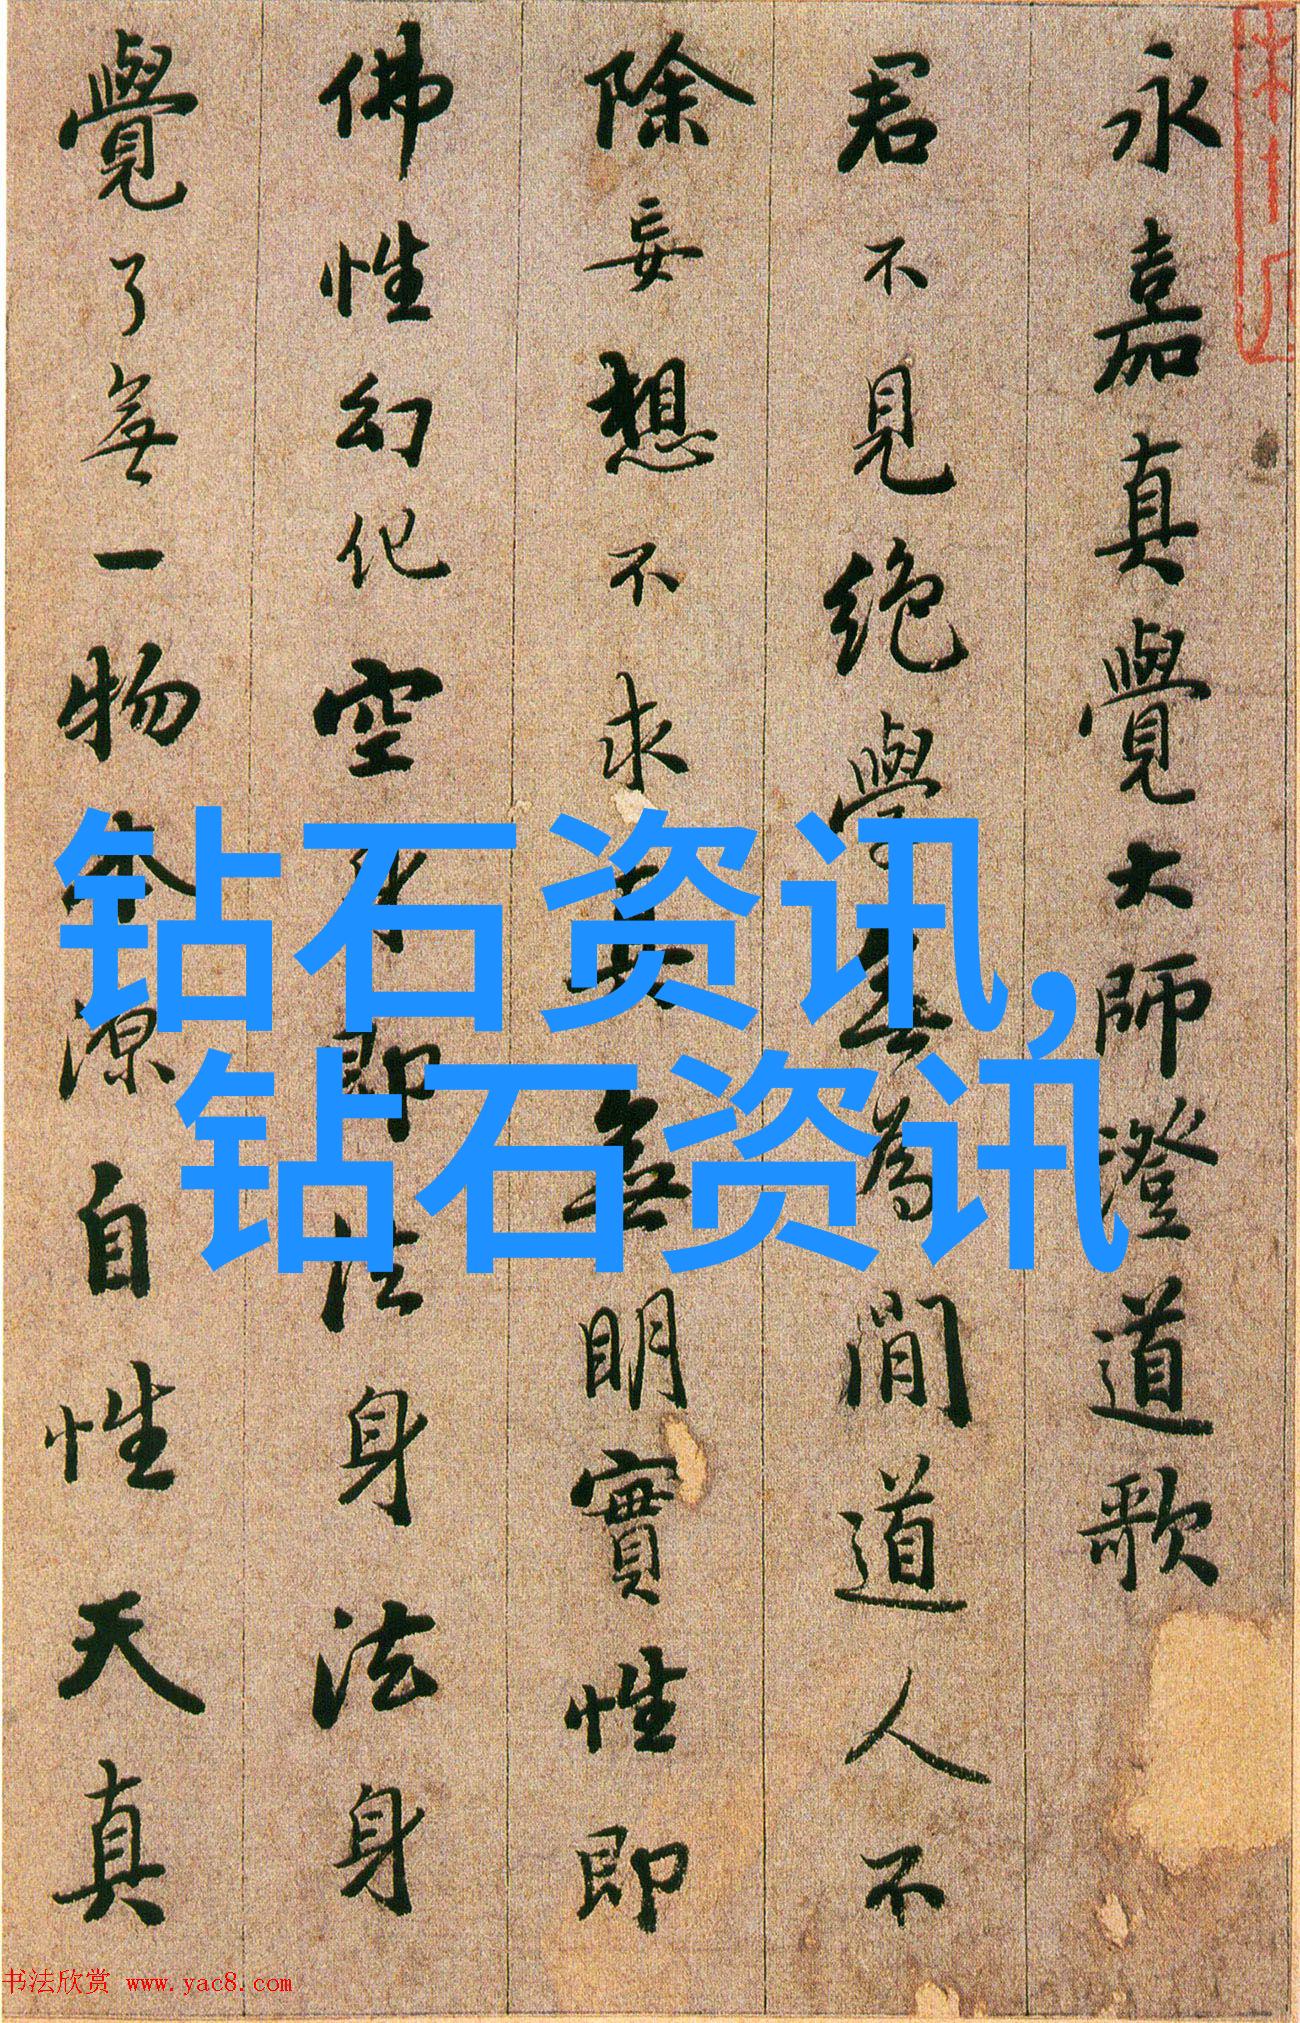 永嘉真覺大師澄道歌
君不見絶學無為閒道人不
除妄想不求真無明實性即
佛性幻化空身即法身法身
覺了無一物本源自性天真
钻石资讯,
钻石资讯
书法欣赏 www.yac8.com